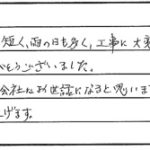 短く、雨の日も多く、工事に大変
とうございました。
会社にお世話になると思います
げます。